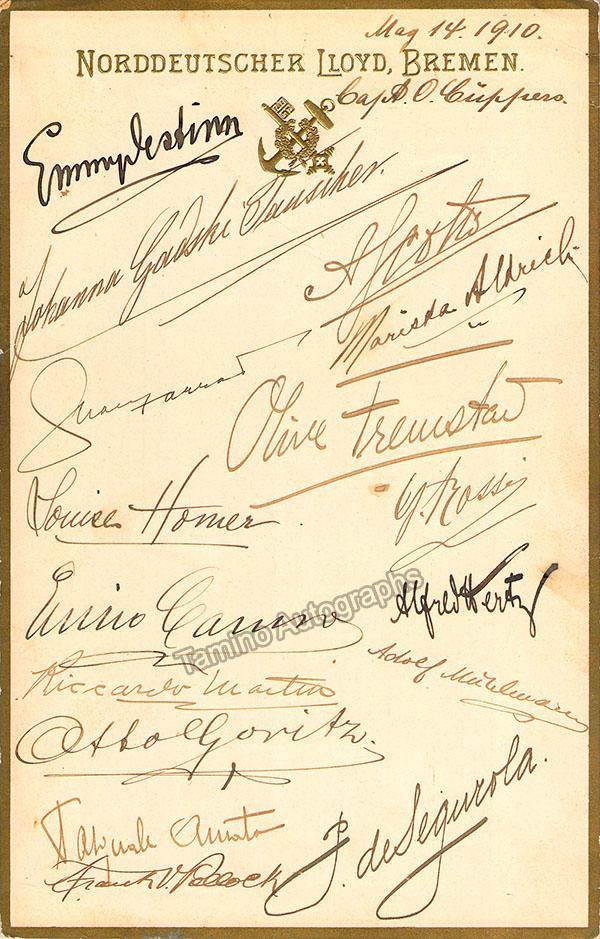 May 14. 1910.
NORDDEUTSCHER LLOYD, BREMEN.
Capt. O. Cüppers.
Emmy Destinn
Johanna Gadski Tauscher.
Mariska Aldrich
Olive Fremstad
Louise Homer
G. Rossi
Enrico Caruso
Alfred Hertz
Tamino Autographs
Adolf Mühlmann
Riccardo Martin
Otto Goritz.
Pasquale Amato
P. J. de Segurola.
Frank V. Pollock